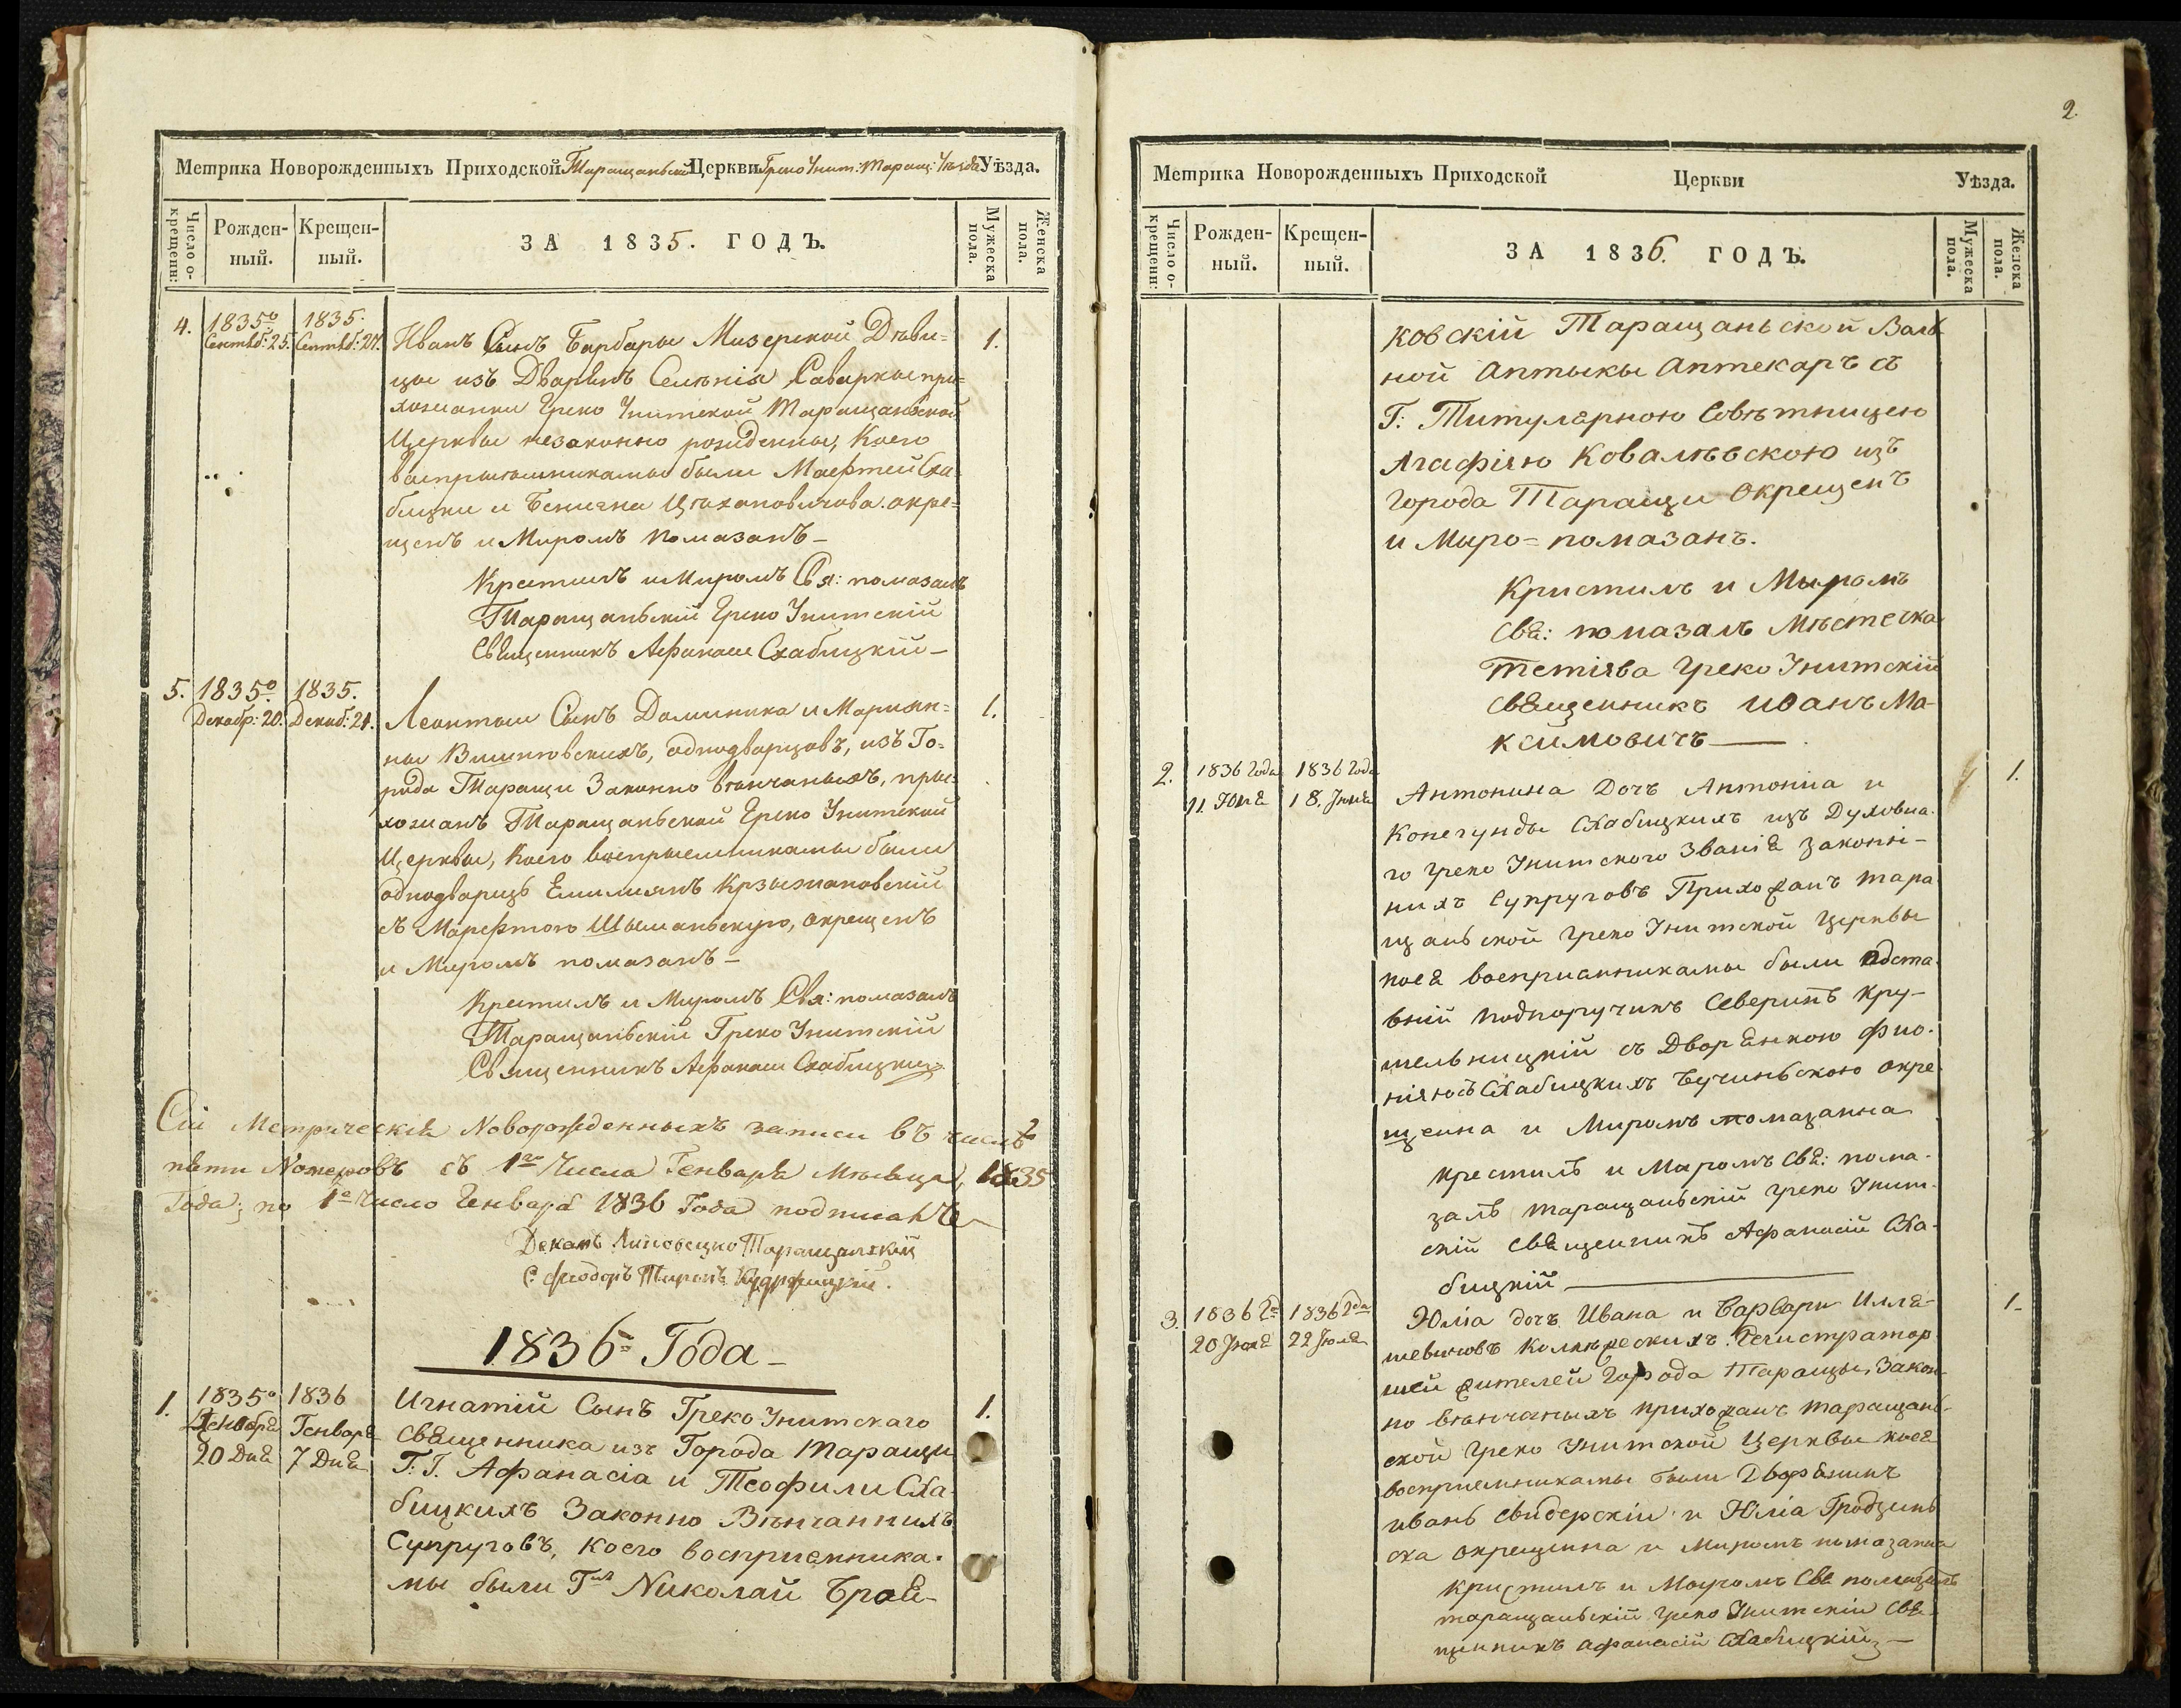 Метрика Новорожденныхъ Приходской Таращанской Церкви Греко Унит: Таращ: Уѣзда Уѣзда.
Число о-
крещенн:
Рожден-
ный.
Крещен-
ный.
ЗА 1835. ГОДЪ.
Мужеска
пола.
Женска
пола.
4. 1835о 1835.
Сентяб: 25. Сентяб: 27. Иванъ Сынъ Барбары Мизерской Дѣви= 1.
цы изъ Дварянъ Селѣнія Саварки при=
хожанки Греко Унитской Таращанской
Церквы незаконно рожденны, Коего
были
бицки и окре=
щенъ и Миромъ помазанъ_
Крестилъ и Миромъ Свя: помазалъ
Таращаньскій Греко Унитскій
Священникъ Афанасі Схабицкій_
5. 1835о 1835.
Декабр: 20. Декаб: 21. Леонтый Сынъ Доминика и Марьян= 1.
ны однодварцовъ, изъ Го=
рода Таращи Законно вѣнчаныхъ, пры=
хожанъ Таращаньской Греко Унитской
Церквы, Коего воспрыемникамы были
однодварицъ Емилиянъ Крзыжановскій
съ окрещенъ
и Миромъ помазанъ_
Крестилъ и Миромъ Свя: помазалъ
Таращаньскій Греко Унитскій
Священникъ Афанаси Схабицкий
Сіи Метрическія Новорожденныхъ записи въ числѣ
пяти Номеровъ съ 1го Числа Генваря Мѣсяца, 1835
Года; по 1е Число Генваря 1836 Года подписалъ
Деканъ Липовецко Таращанскій
С: Ѳеодоръ
1836о Года_
1. 1835о 1836 Игнатій Сынъ Греко Унитскаго 1.
Декабря Генваря Священника изъ Города Таращи
20 Дня 7 Дня Г: Г. Афанасіа и Теофили Сха-
бицкихъ Законно Вѣнчаннихъ
Супруговъ, коего восприемника-
мы были Гнъ Николай
2.
Метрика Новорожденныхъ Приходской Церкви Уѣзда.
Число о-
крещенн:
Рожден-
ный.
Крещен-
ный.
ЗА 1836. ГОДЪ.
Мужеска
пола.
Женска
пола.
ковскій Таращаньской Валь-
ной Аптыкы Аптекаръ съ
Г: Титулярною Совѣтницею
Агафіею Ковалѣвскою изъ
Города Таращи Окрещенъ
и Миро=помазанъ.
Кристилъ и Мыромъ
Свя: помазалъ Мѣстечка
Тетіява Греко Унитскій
Священникъ Иоанъ Ма-
ксимовичъ
2. 1836 Года 1836 Года 1.
11 Юня 18. Юня Антонина Дочъ Антоніа и
Конегунды Схабицкихъ изъ Духовна-
го Греко Унитского Званія Законн-
нихъ Супруговъ Прихожанъ Тара-
щаньской Греко Унитской Церквы
коея восприемникамы были
вній подпоручикъ Северинъ Кру-
шельницкій съ Дворянкою
Схабицкихъ окре-
щенна и Миромъ помазанна
Крестилъ и Миромъ Свя: пома-
залъ Таращаньскій Греко Унит-
скій Священникъ Афанасій Сха-
бицкій
3. 1836 Гда 1836 Гда Юліа дочъ Ивана и Варвари 1.
20 Июня 22 Июля Регистратор-
жителей Города Таращы, Закон-
но вѣнчаныхъ прихожанъ Таращань-
ской Греко Унитской Церквы коея
восприемникамы были Дворянинъ
иванъ Свидерскій и Юліа Гродзинь-
ска окрещенна и Миромъ помазанна
Кристилъ и Мыромъ Свя помазалъ
таращаньскій Греко Унитскій Свя-
щенникъ Афанасій Схабицкій_